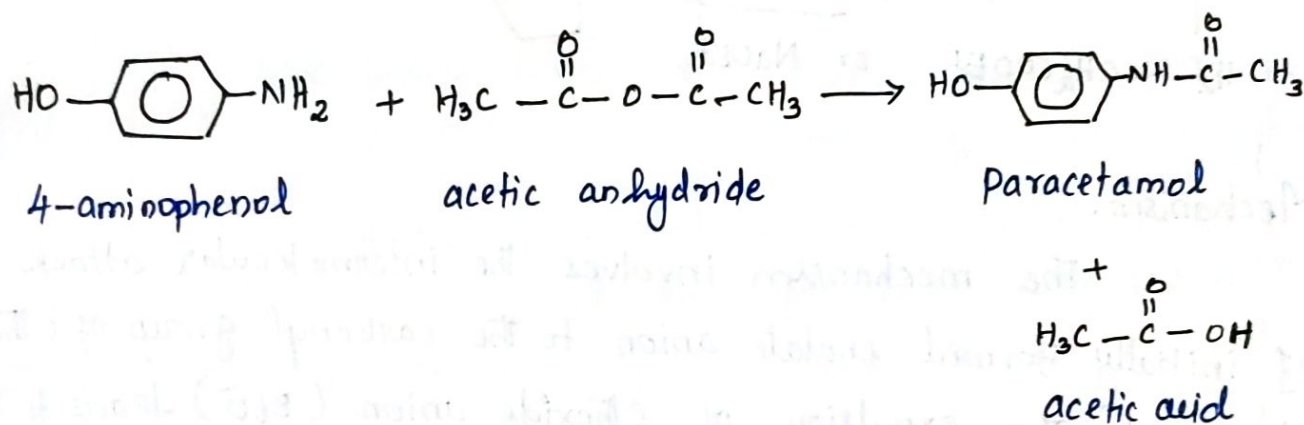 HO- -NH₂ + H₃C - C(=O) - O - C(=O) - CH₃ → HO- -NH-C(=O)-CH₃
4-aminophenol acetic anhydride Paracetamol
+
H₃C - C(=O) - OH
acetic acid